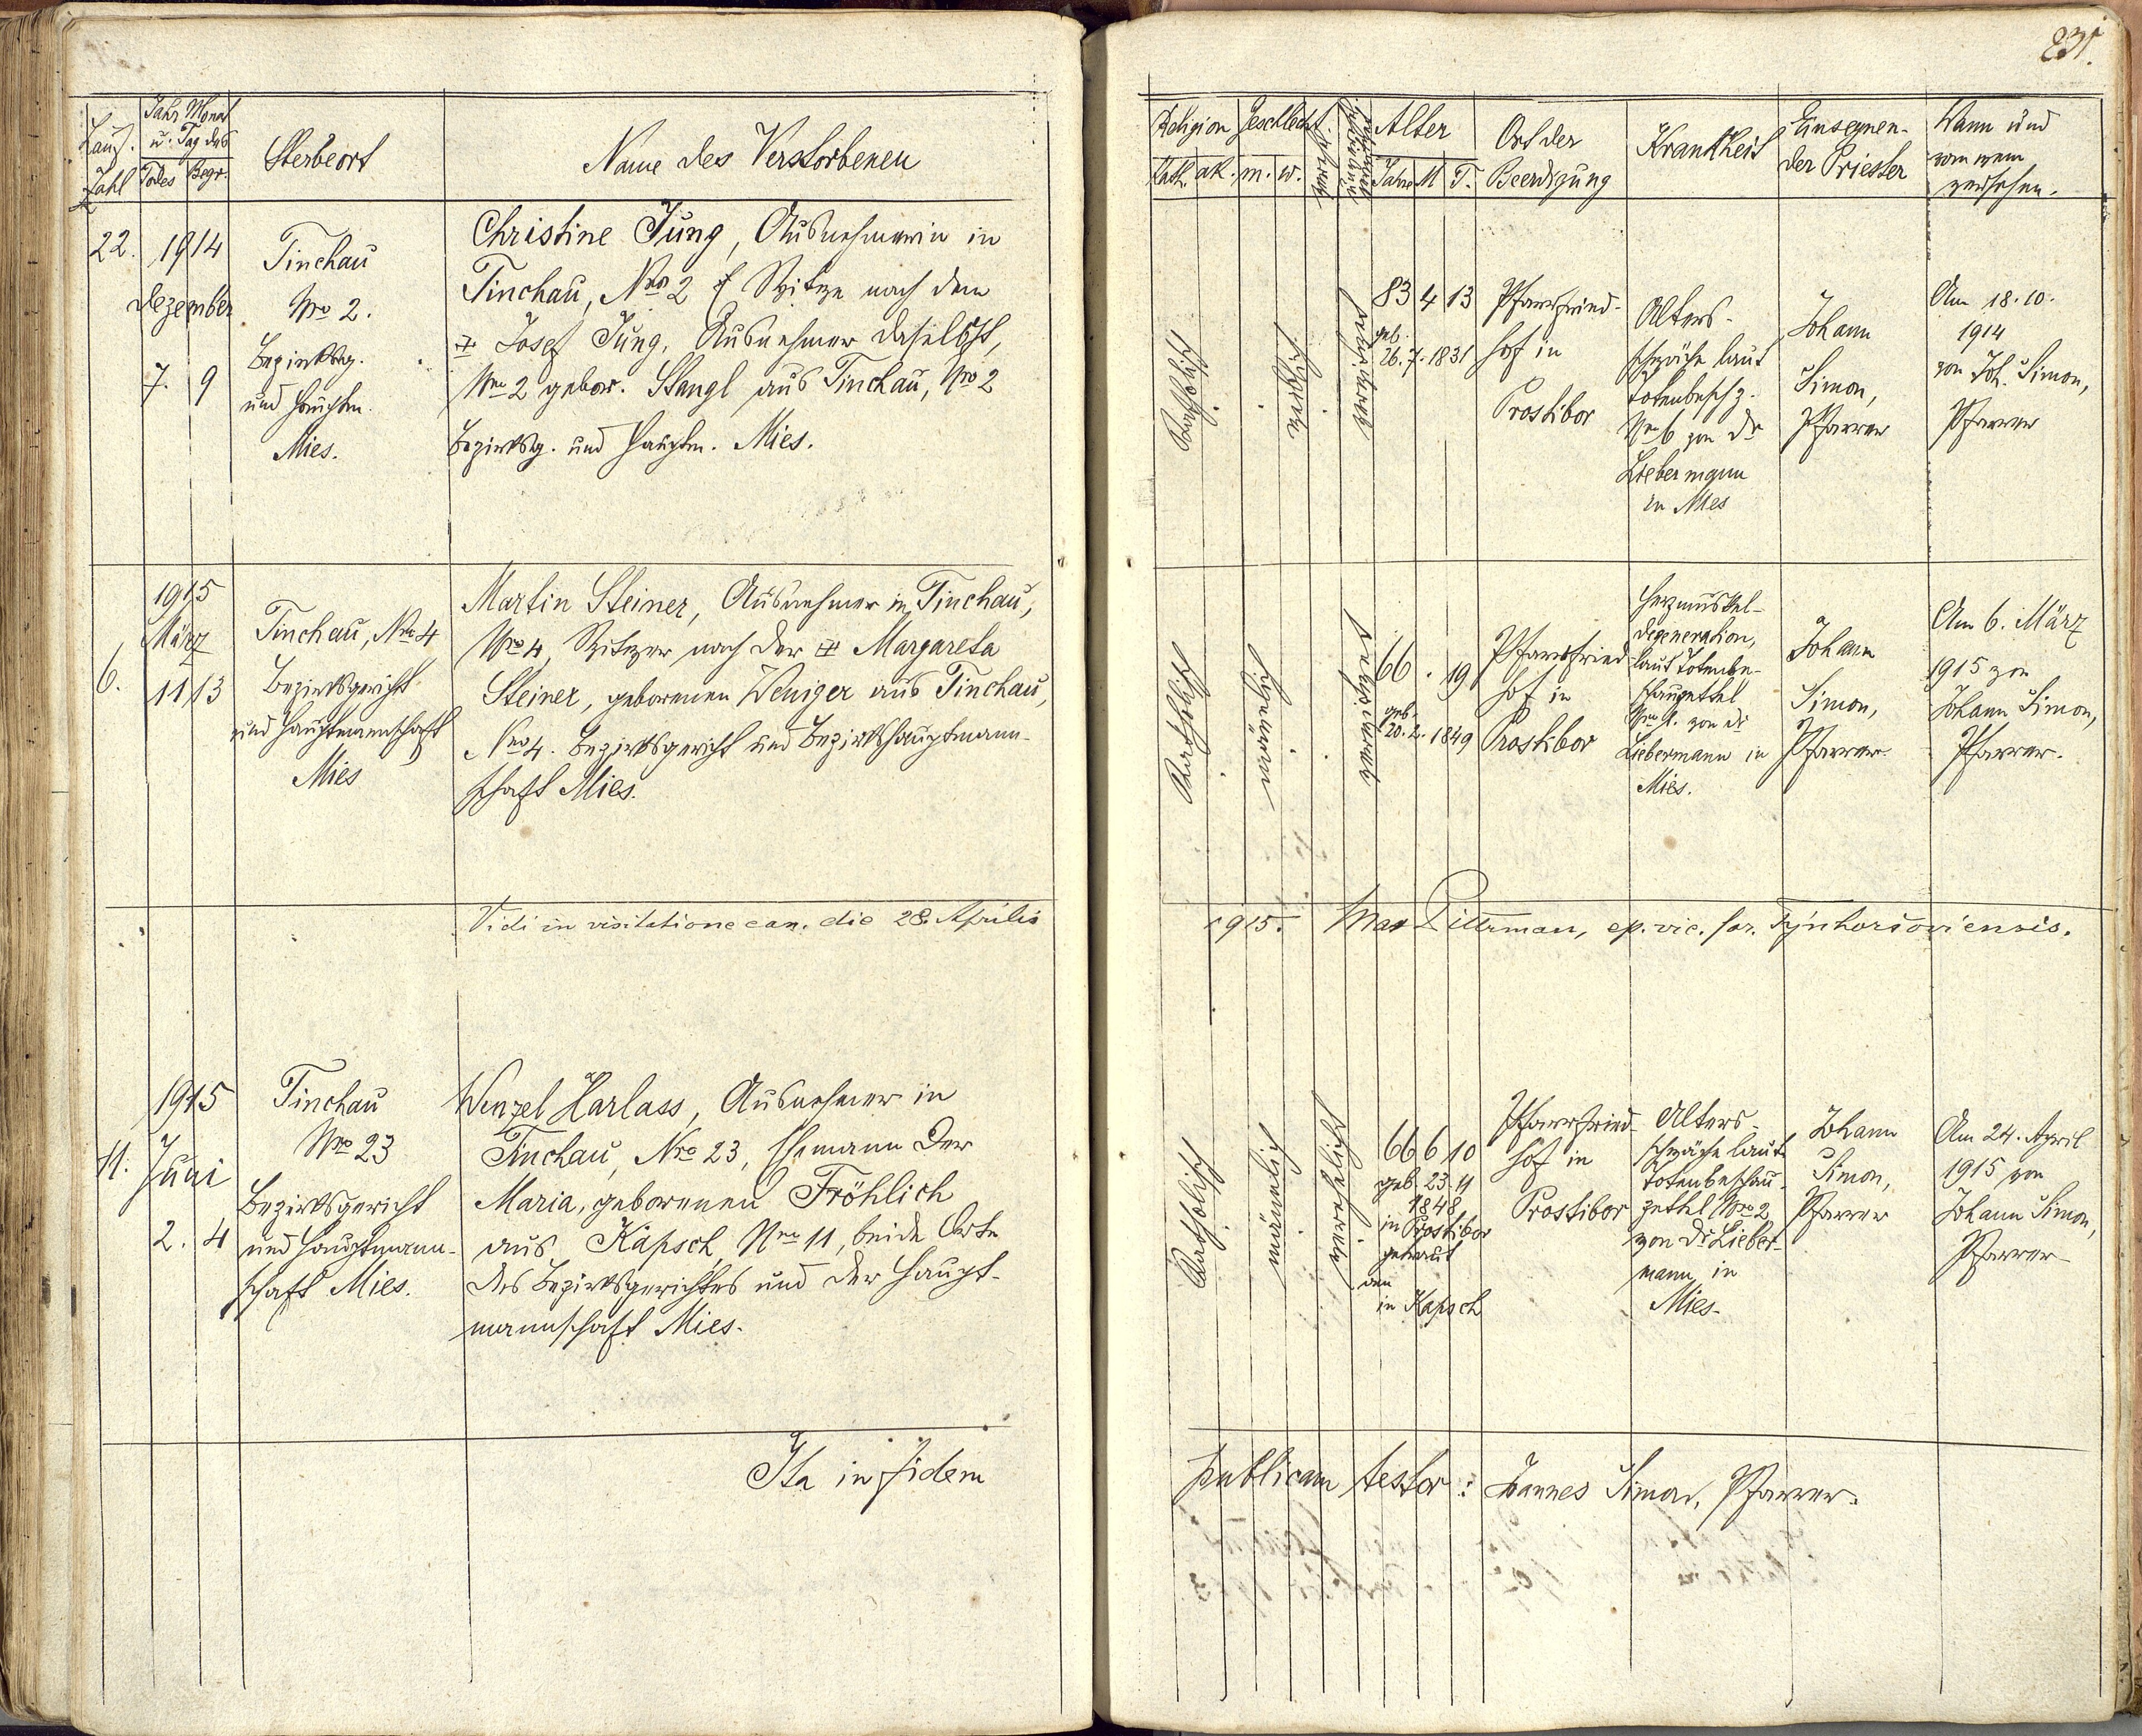 231.
Lauf. Zahl
Jahr Monat u. Tag des
Todes Begr.
Sterbeort
Name des Verstorbenen
22.
1914
Dezember
7. 9
Tinchau
Nro 2.
Bezirksg.
und Hauptm.
Mies.
Christine Jung, Ausnehmerin in
Tinchau, Nro 2 Witwe nach dem
Josef Jung, Ausnehmer daselbst,
Nro 2 gebor. Stangl aus Tinchau, Nro 2
Bezirksg. und Hauptm. Mies.
6.
1915
März
11 13
Tinchau, Nro 4
Bezirksgericht
und Hauptmannschaft
Mies
Martin Steiner, Ausnehmer in Tinchau,
Nro 4, Witwer nach der Margareta
Steiner, geborenen Weniger aus Tinchau,
Nro 4. Bezirksgericht und Bezirkshauptmann-
schaft Mies.
Vidi in visitatione can. die 28. Aprilis
11.
1915
Juni
2. 4
Tinchau
Nro 23
Bezirksgericht
und Hauptmann-
schaft Mies.
Wenzel Harlass, Ausnehmer in
Tinchau, Nro 23, Ehemann der
Maria, geborenen Fröhlich
aus Kapsch Nro 11, beide Orte
des Bezirksgerichtes und der Haupt-
mannschaft Mies.
Ita in fidem
Religion
Kath. ak.
Geschlecht
m. w.
Alter
Jahre M T.
Ort der
Beerdigung
Krankheit
Einsegnen-
der Priester
Wann und
von wem
versehen.
Katholisch
weiblich
verwitwet
83 4 13
geb.
26. 7. 1831
Pfarrfried-
hof in
Prostibor
Alters-
schwäche laut
Totenbesch z.
Nro 6 von Dr
Liebermann
in Mies
Johann
Simon,
Pfarrer
Am 18. 10.
1914
von Joh. Simon,
Pfarrer
Katholisch
männlich
verwitwet
66 . 19
geb.
20. 2. 1849
Pfarrfried-
hof in
Prostibor
Herzmuskel-
degeneration,
laut Totenbe-
schauzettel
von Dr
Liebermann in
Mies.
Johann
Simon,
Pfarrer
Am 6. März
1915 von
Johann Simon,
Pfarrer.
1915. Max Pillrman, ep. vic. for.
Katholisch
männlich
verehelicht
66 6 10
geb. 23. 11
1848
in Prostibor
getraut
den
in Kapsch
Pfarrfried-
hof in
Prostibor
Alters-
schwäche laut
Totenbeschau-
zettel Nro 2
von Dr Lieber-
mann in
Mies.
Johann
Simon,
Pfarrer
Am 24. April
1915 von
Johann Simon,
Pfarrer
publicam testor: Joannes Simon, Pfarrer.